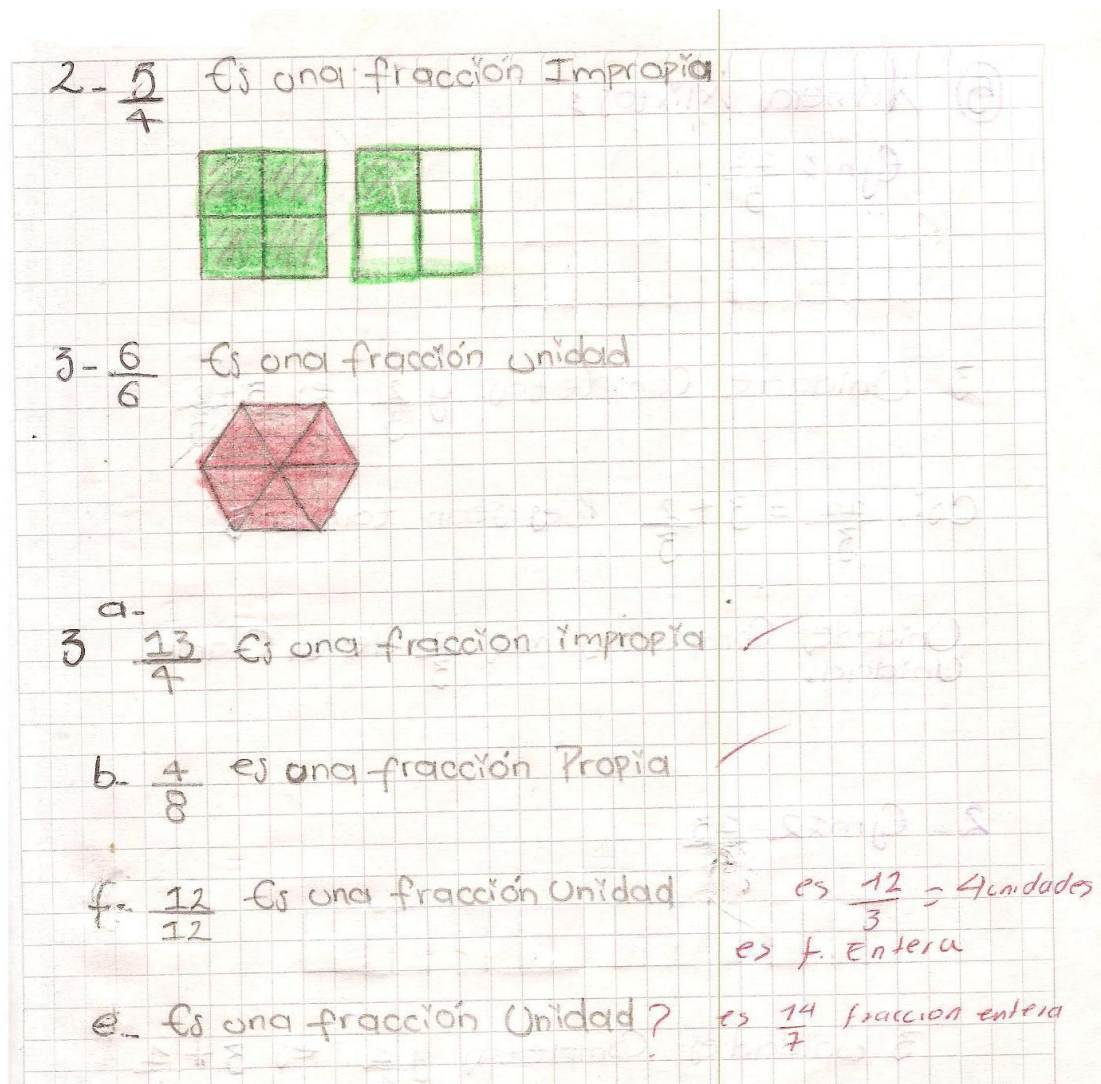 2- 5/4 Es una fracción Impropia
3- 6/6 Es una fracción unidad
a-
3 13/4 Es una fraccion impropia
b- 4/8 es una fracción Propia
f- 12/12 Es una fracción Unidad es 12/3 = 4unidades
es f. Entera
e- Es una fracción Unidad? es 14/7 fraccion entera